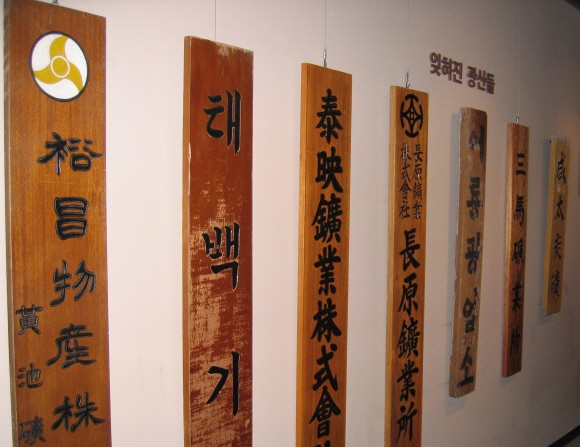 잊혀진 광산들
裕昌物産株
黃池礦
태백기
泰映鑛業株式會
長原鑛業
株式會社
長原鑛業所
어룡광업소
三馬礦業所
咸太炭